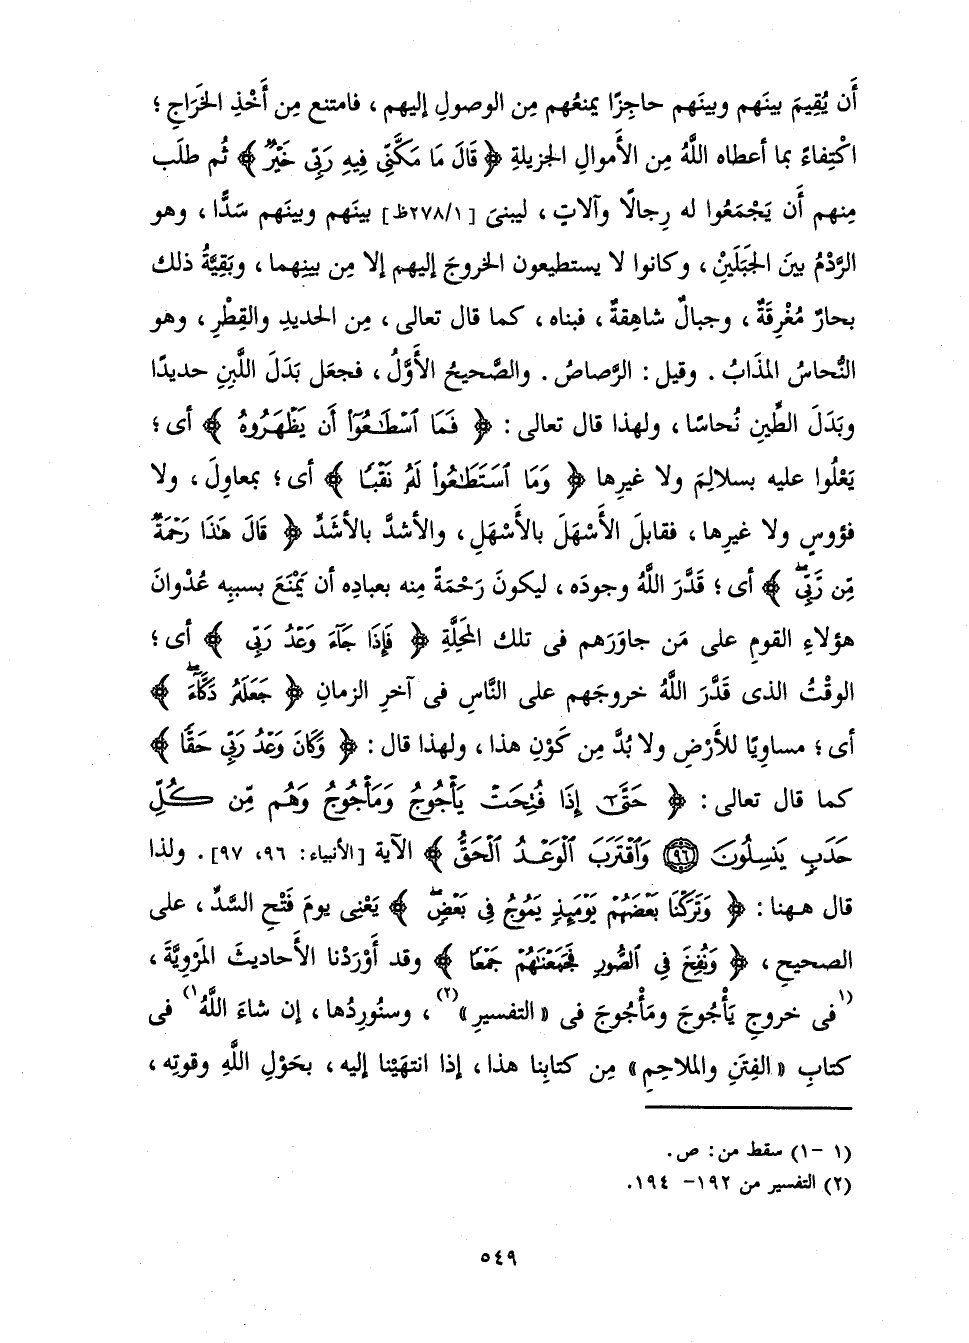 أَن يُقِيمَ بينَهم وبينَهم حاجِزًا يمنعُهم مِن الوصولِ إليهم ، فامتنع مِن أَخْذِ الخَرَاجِ ؛
اكْتِفاءً بما أعطاه اللَّهُ مِن الأَموالِ الجزيلةِ ﴿ قَالَ مَا مَكَّنِّى فِيهِ رَبِّى خَيْرٌ ﴾ ثُم طلَب
مِنهم أَن يَجْمَعُوا له رِجالًا وآلاتٍ ، ليبنىَ [٢٧٨/١ظ] بينَهم وبينَهم سَدًّا ، وهو
الرَّدْمُ بينَ الجَبَلَيْنِ ، وكانوا لا يستطيعون الخروجَ إليهم إلا مِن بينِهما ، وبَقِيَّةُ ذلك
بحارٌ مُغْرِقَةٌ ، وجبالٌ شاهِقةٌ ، فبناه ، كما قال تعالى ، مِن الحديدِ والقِطْرِ ، وهو
النُّحاسُ المذَابُ . وقيل : الرَّصاصُ . والصَّحيحُ الأَوَّلُ ، فجعَل بَدَلَ اللَّبِنِ حديدًا
وبَدَلَ الطِّينِ نُحاسًا ، ولهذا قال تعالى : ﴿ فَمَا ٱسْطَـٰعُوٓا۟ أَن يَظْهَرُوهُ ﴾ أى ؛
يَعْلُوا عليه بسلالِمَ ولا غيرِها ﴿ وَمَا ٱسْتَطَـٰعُوا۟ لَهُۥ نَقْبًا ﴾ أى ؛ بمعاولَ ، ولا
فؤوسٍ ولا غيرِها ، فقابلَ الأَسْهَلَ بالأَسْهَلِ ، والأشدَّ بالأشَدِّ ﴿ قَالَ هَـٰذَا رَحْمَةٌ
مِّن رَّبِّى ﴾ أى ؛ قَدَّرَ اللَّهُ وجودَه ، ليكونَ رَحْمَةً مِنه بعبادِه أن يَمْنَعَ بسببِه عُدْوانَ
هؤلاءِ القومِ على مَن جاوَرَهم فى تلك المَحِلَّةِ ﴿ فَإِذَا جَآءَ وَعْدُ رَبِّى ﴾ أى ؛
الوقْتُ الذى قَدَّرَ اللَّهُ خروجَهم على النَّاسِ فى آخرِ الزمانِ ﴿ جَعَلَهُۥ دَكَّآءَ ﴾
أى ؛ مساوِيًا للأَرْضِ ولا بُدَّ مِن كَوْنِ هذا ، ولهذا قال : ﴿ وَكَانَ وَعْدُ رَبِّى حَقًّا ﴾
كما قال تعالى : ﴿ حَتَّىٰٓ إِذَا فُتِحَتْ يَأْجُوجُ وَمَأْجُوجُ وَهُم مِّن كُلِّ
حَدَبٍ يَنسِلُونَ ﴿٩٦﴾ وَٱقْتَرَبَ ٱلْوَعْدُ ٱلْحَقُّ ﴾ الآية [الأنبياء : ٩٦، ٩٧] . ولذا
قال هـهنا : ﴿ وَتَرَكْنَا بَعْضَهُمْ يَوْمَئِذٍ يَمُوجُ فِى بَعْضٍ ﴾ يَعْنى يومَ فَتْحِ السَّدِّ ، على
الصحيحِ ، ﴿ وَنُفِخَ فِى ٱلصُّورِ فَجَمَعْنَـٰهُمْ جَمْعًا ﴾ وقد أَوْرَدْنا الأَحاديثَ المَرْوِيَّةَ ،
(١فى خروجِ يَأْجُوجَ ومَأْجُوجَ فى «التفسيرِ»(٢) ، وسنُورِدُها ، إن شاءَ اللَّهُ١) فى
كتابِ «الفِتَنِ والملاحِمِ» مِن كتابِنا هذا ، إذا انتهَيْنا إليه ، بحَوْلِ اللَّهِ وقوتِه ،
(١ -١) سقط من : ص .
(٢) التفسير من ١٩٢- ١٩٤.
٥٤٩